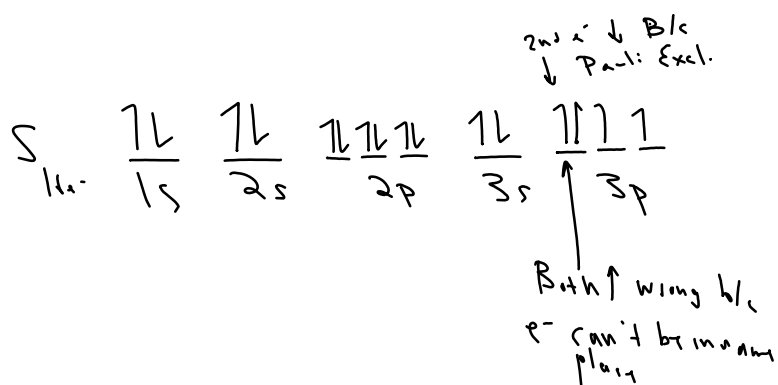 2nd e⁻ ↓ B/c
↓ Pauli Excl.
S 1↓ 1↓ 1↓ 1↓ 1↓ 1↓ 11 1 1
16e- 1s 2s 2p 3s 3p
Both ↑ wrong b/c
e⁻ can't be in same
place